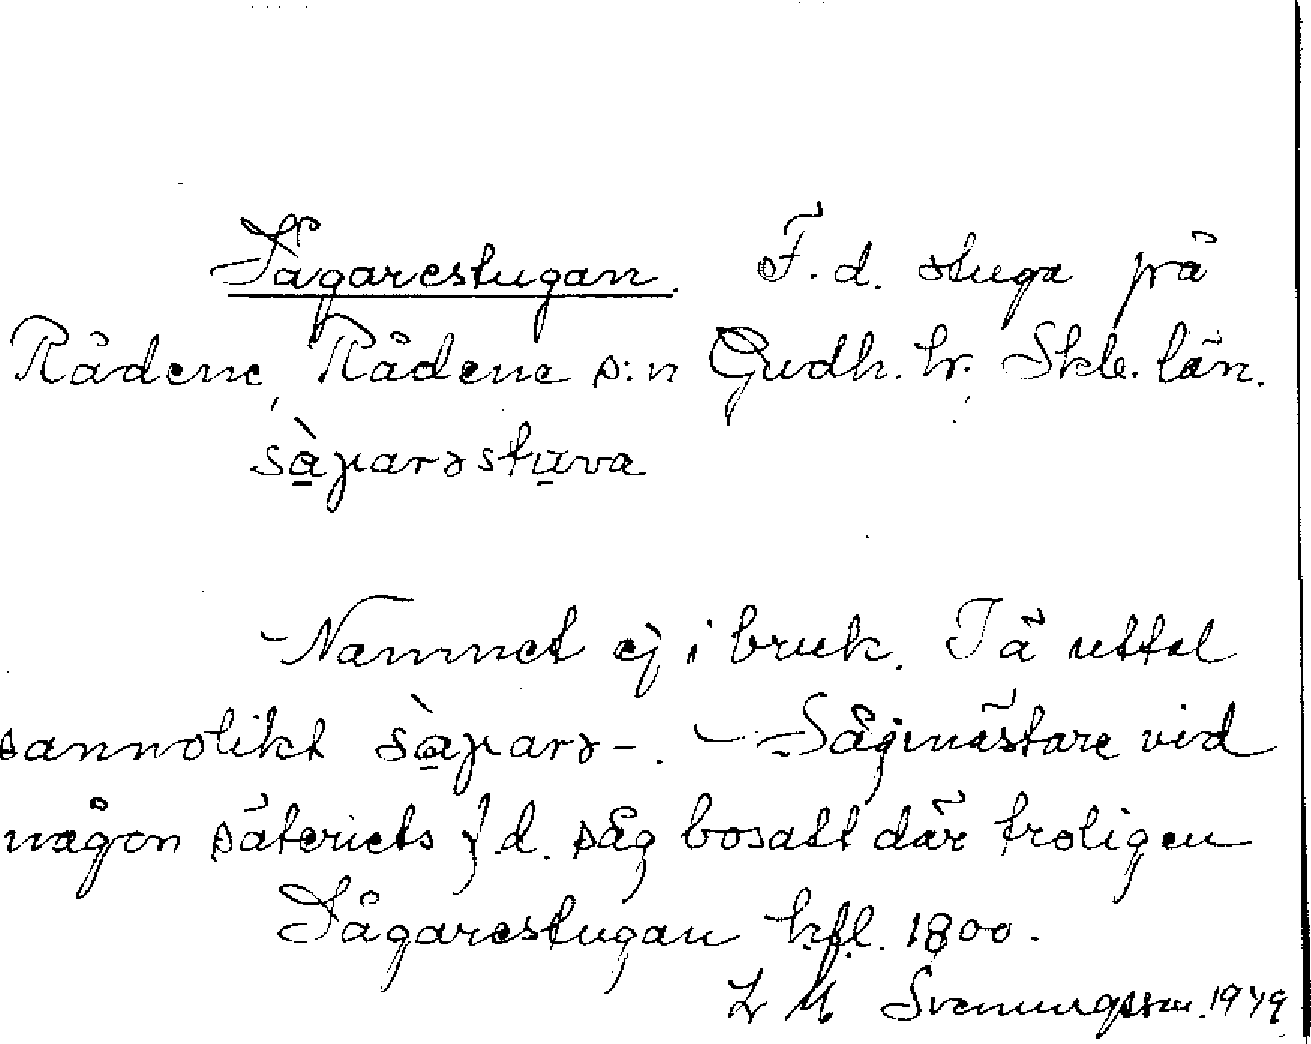 Sågarestugan. F.d. stuga på
Rådene, Rådene s:n Gudh. hr. Skb. län.
sàɲarəstuva
Namnet ej i bruk. Tä uttal
sannolikt sàɲarə-. – Sågmästare vid
någon säteriets f.d. såg bosatt där troligen
Sågarestugan hfl. 1800.
L M Svenungsson. 1949